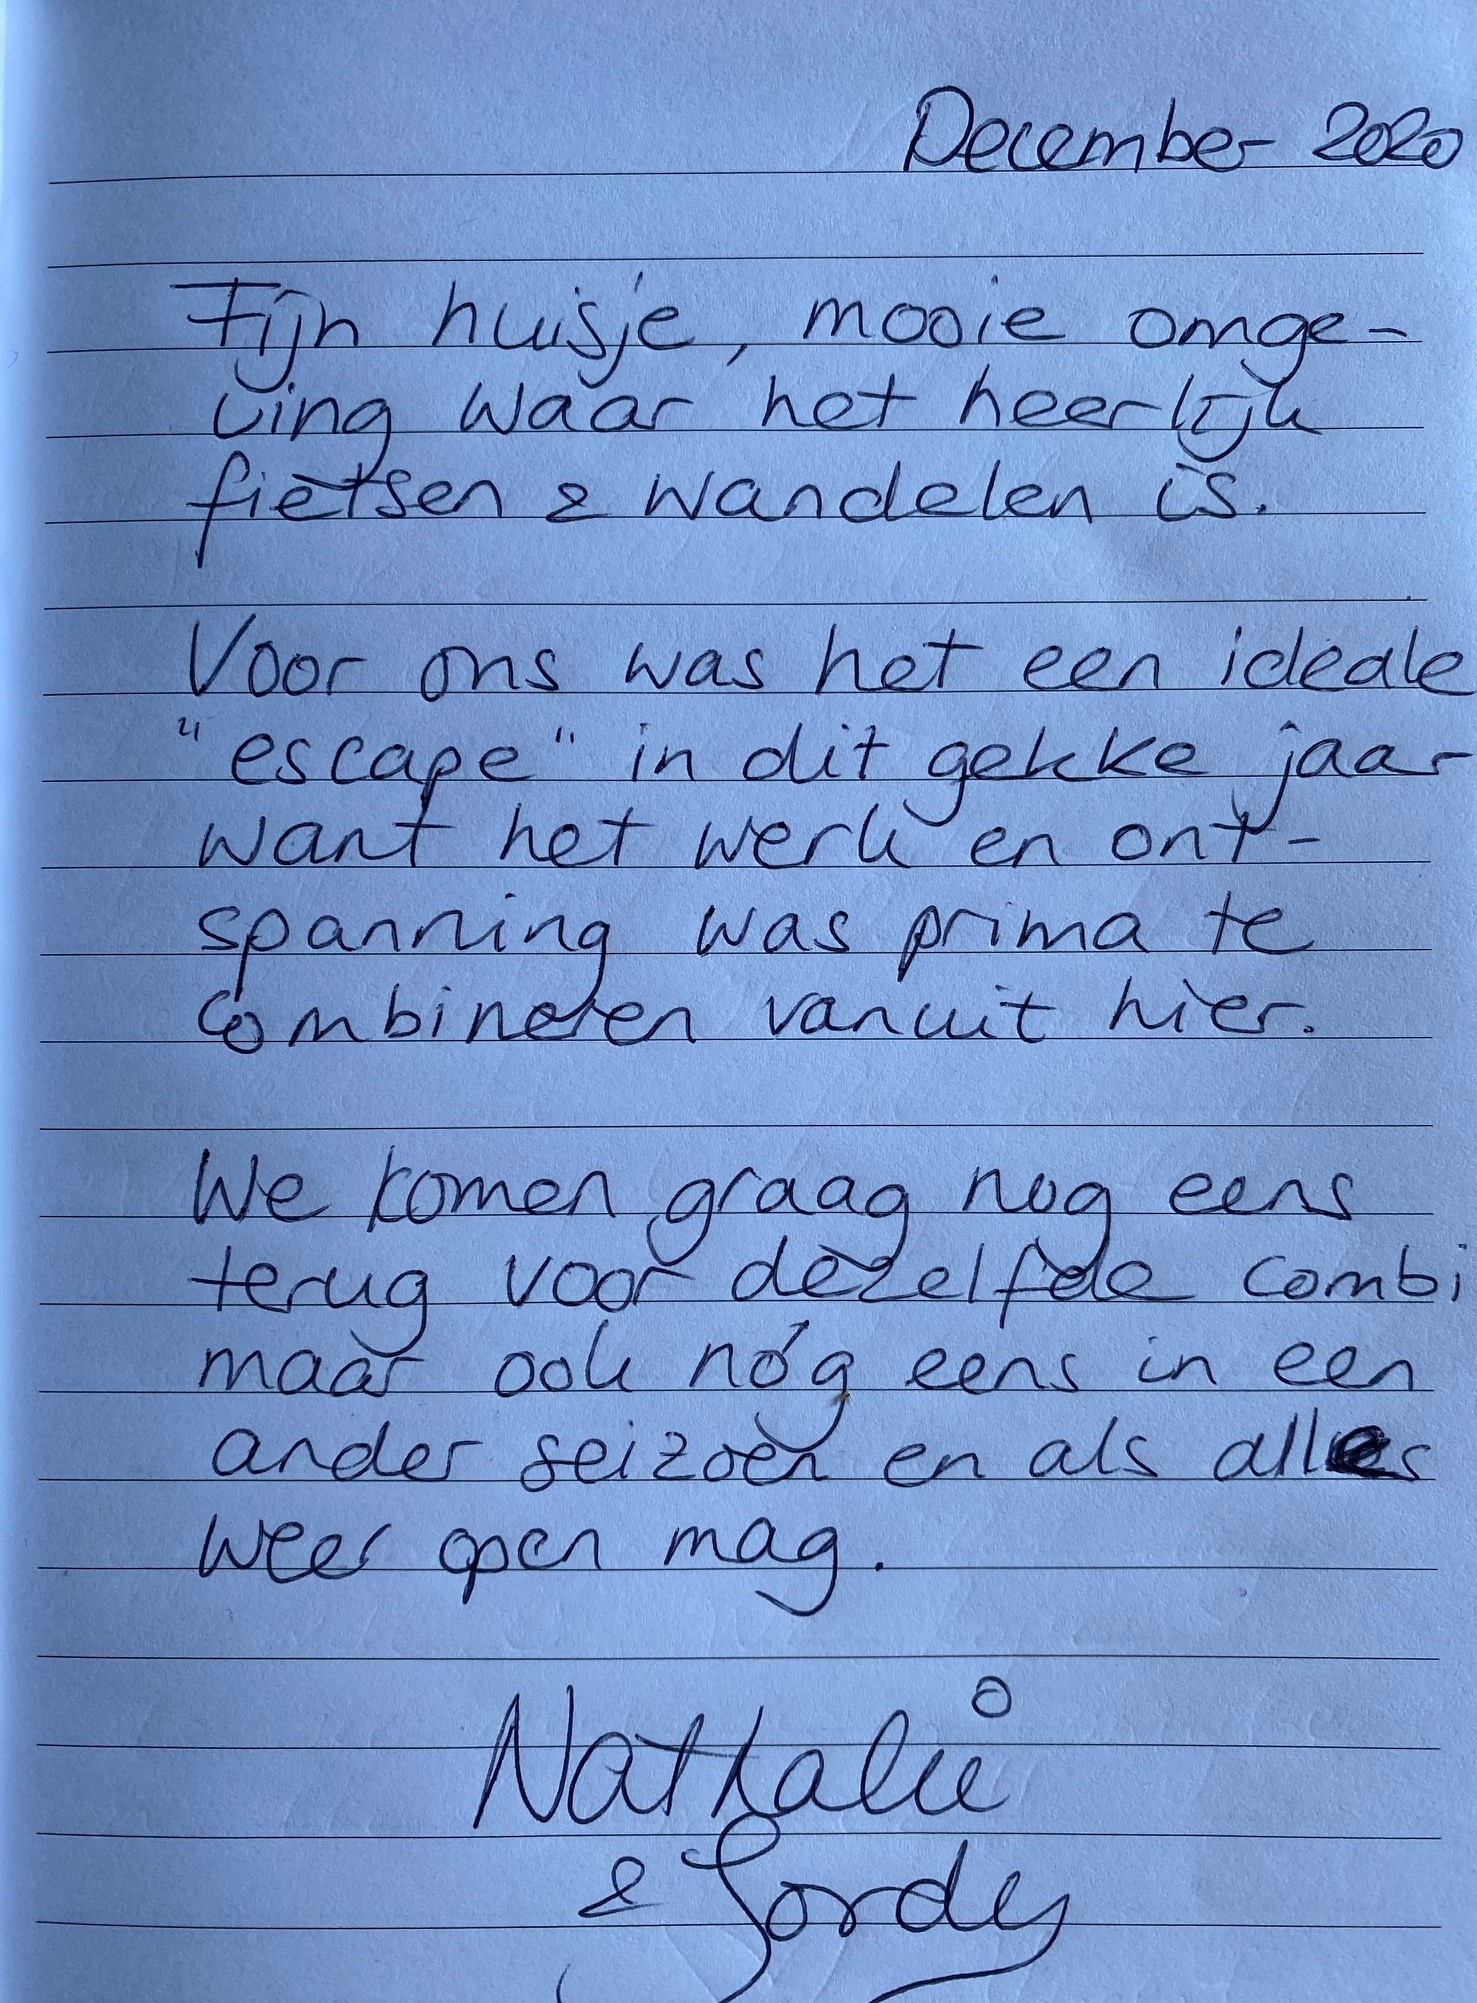 December 2020
Fijn huisje, mooie omge-
ving waar het heerlijk
fietsen & wandelen is.
Voor ons was het een ideale
"escape" in dit gekke jaar
want het werk en ont-
spanning was prima te
combineren vanuit hier.
We komen graag nog eens
terug voor dezelfde combi
maar ook nóg eens in een
ander seizoen en als alles
weer open mag.
Nathalie
& Jordy